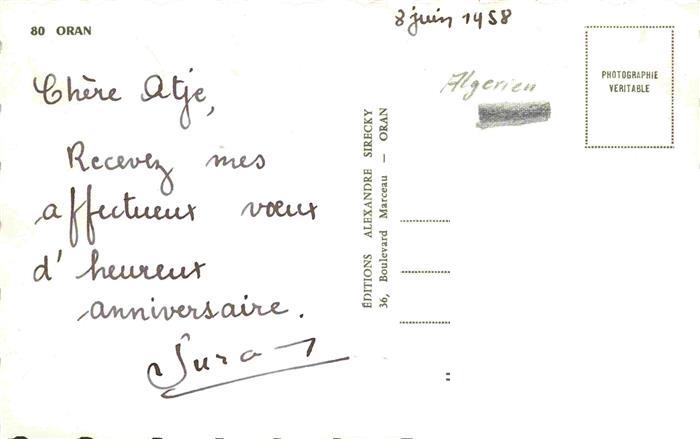 80 ORAN
8 juin 1958
Chère Atje,
Recevez mes
affectueux vœux
d' heureux
anniversaire.
ÉDITIONS ALEXANDRE SIRECKY
36, Boulevard Marceau — ORAN
Algerien
PHOTOGRAPHIE
VERITABLE